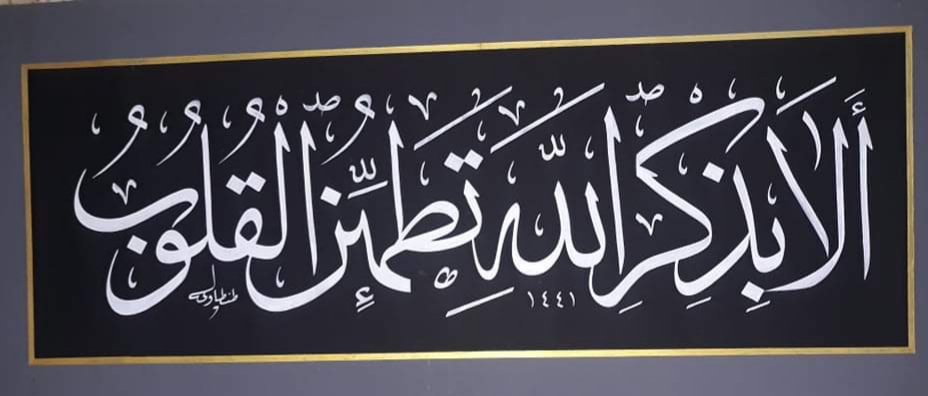 أَلَا بِذِكْرِ اللَّهِ تَطْمَئِنُّ الْقُلُوبُ
١٤٤١
طنطاوي